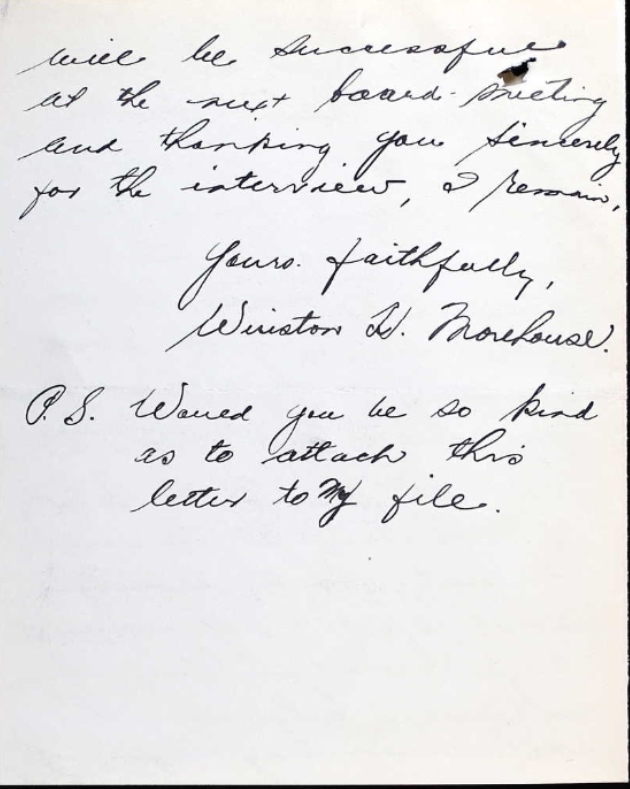 will be successful
at the next board-meeting
and thanking you sincerely
for the interview, I remain,
Yours faithfully,
Winston H. Morehouse.
P.S. Would you be so kind
as to attach this
letter to my file.